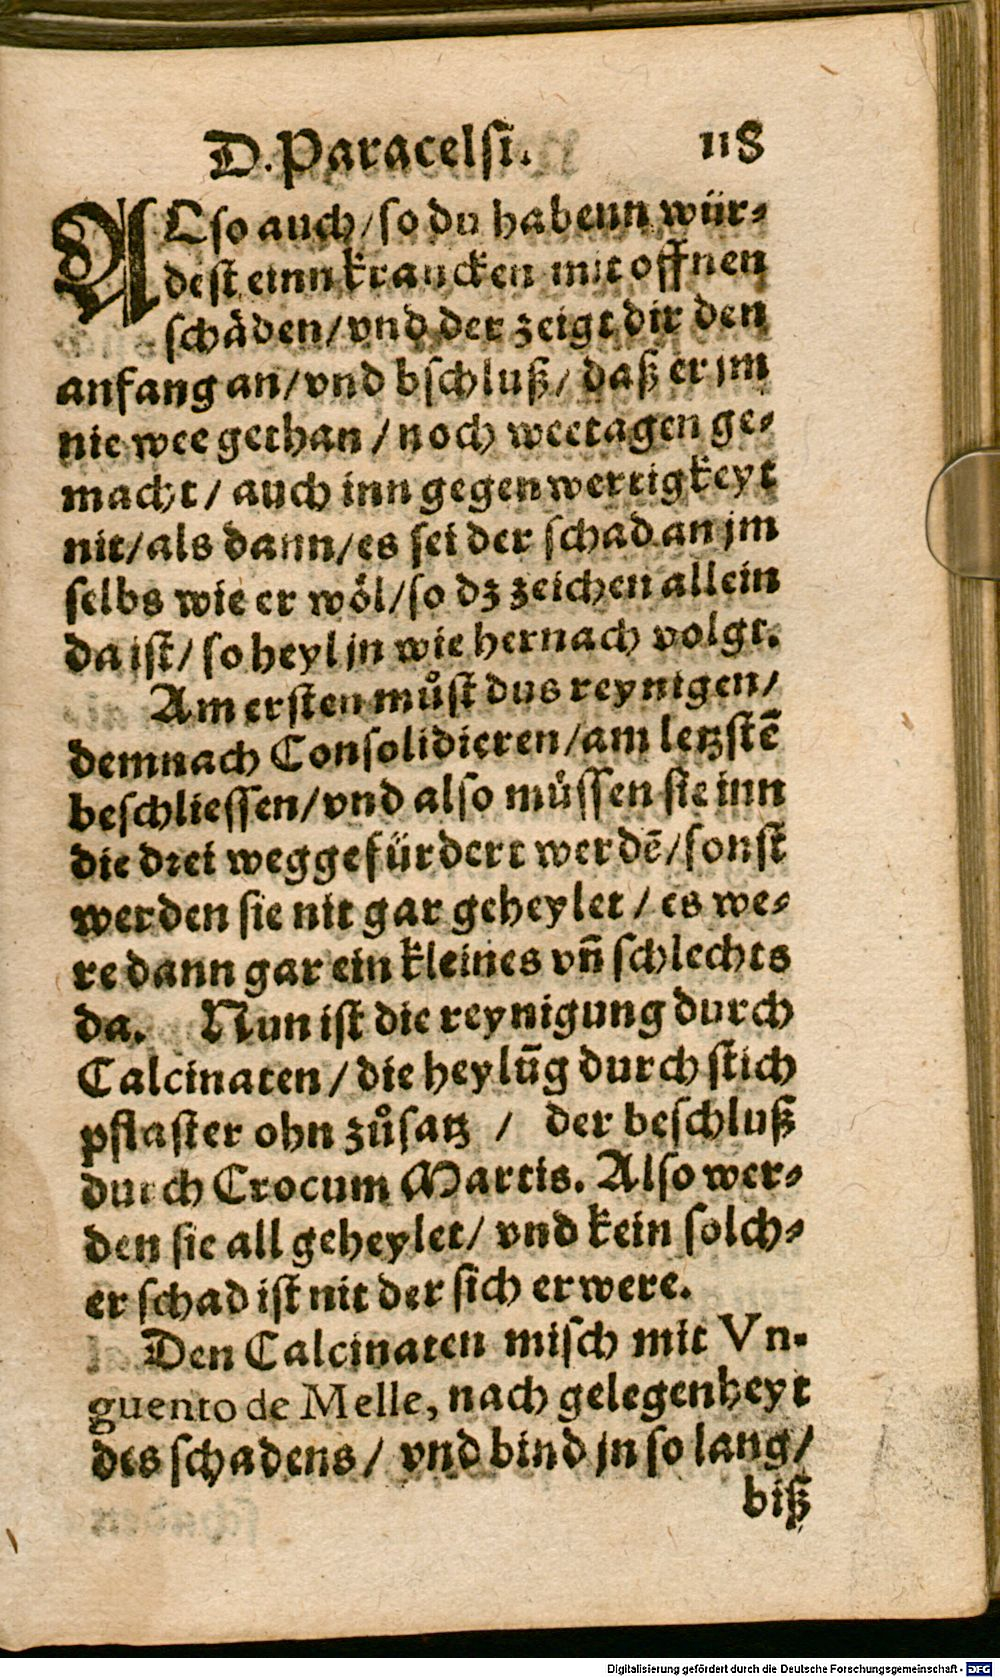 D. Paracelsi. 118
ALso auch / so du habenn wür⸗
dest einn krancken mit offnen
schäden / vnd der zeigt dir den
anfang an / vnd bschluß / daß er jm
nie wee gethan / noch weetagen ge⸗
macht / auch inn gegenwertigkeyt
nit / als dann / es sei der schad an jm
selbs wie er wöl / so dz zeichen allein
da ist / so heyl jn wie hernach volgt.
Am ersten můst dus reynigen /
demnach Consolidieren / am letzstē
beschliessen / vnd also müssen sie inn
die drei weg gefürdert werdē / sonst
werden sie nit gar geheylet / es we⸗
re dann gar ein kleines vñ schlechts
da. Nun ist die reynigung durch
Calcinaten / die heylūg durch stich
pflaster ohn zůsatz / der beschluß
durch Crocum Martis. Also wer⸗
den sie all geheylet / vnd kein solch⸗
er schad ist nit der sich erwere.
Den Calcinaten misch mit Vn-
guento de Melle, nach gelegenheyt
des schadens / vnd bind jn so lang /
biß
Digitalisierung gefördert durch die Deutsche Forschungsgemeinschaft - DFG